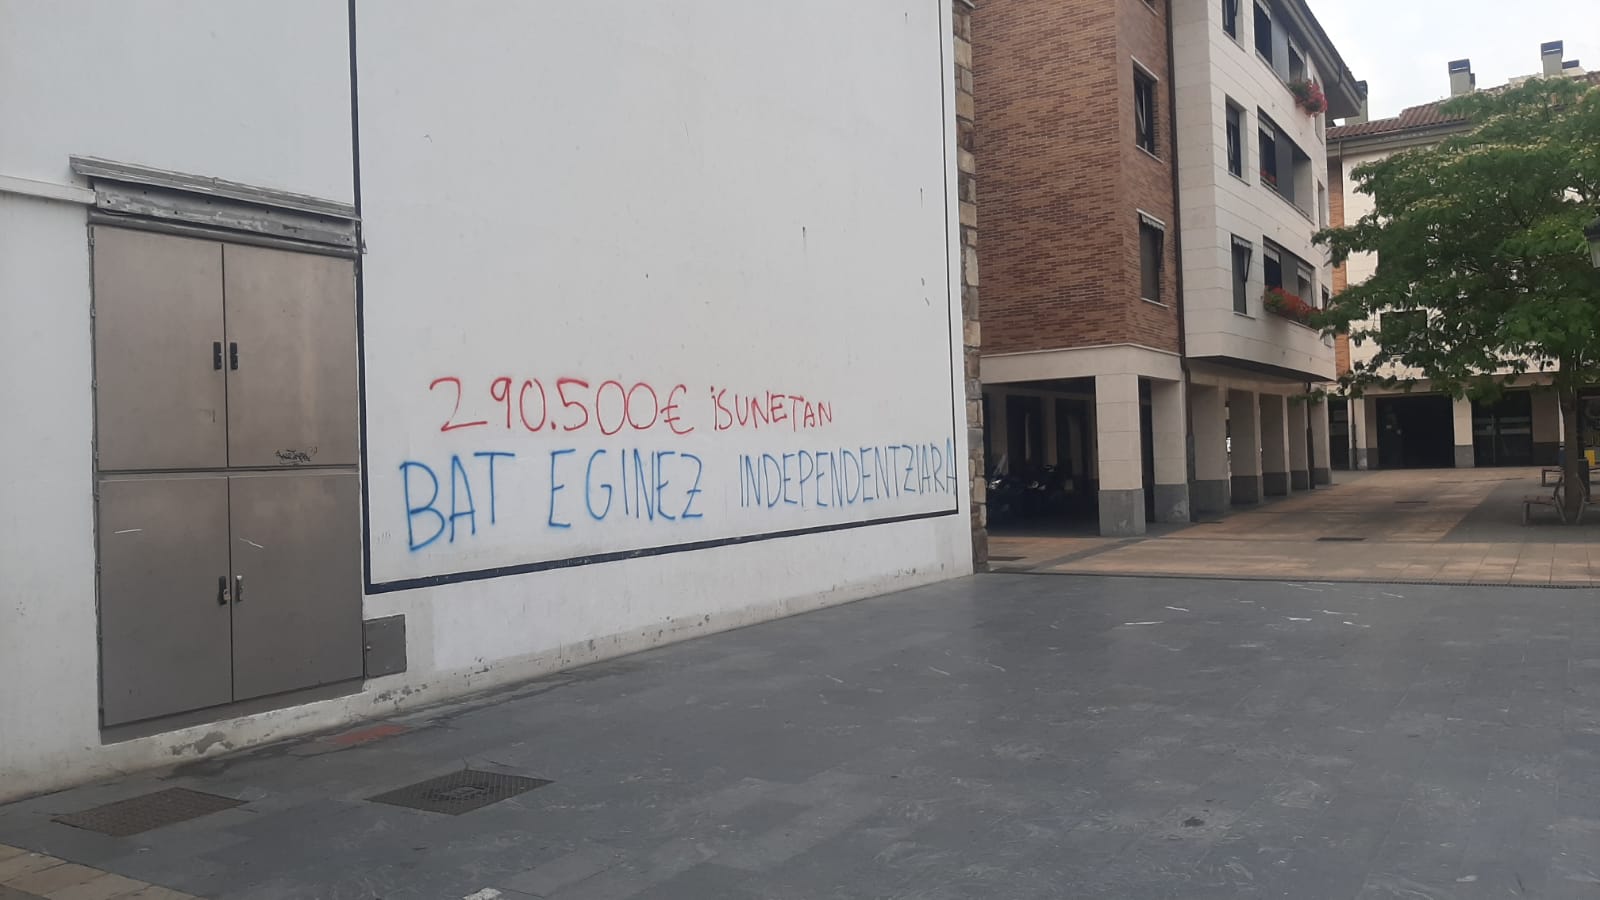 290.500€ iSUNETAN
BAT EGINEZ INDEPENDENTZIARA